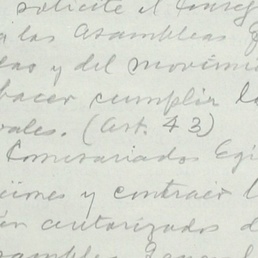 solicite el Conse
a las Asambleas
y del movimi
hacer cumplir l
rales. (Art. 43)
Comisariados Eji
iones y contraer l
autorizados d